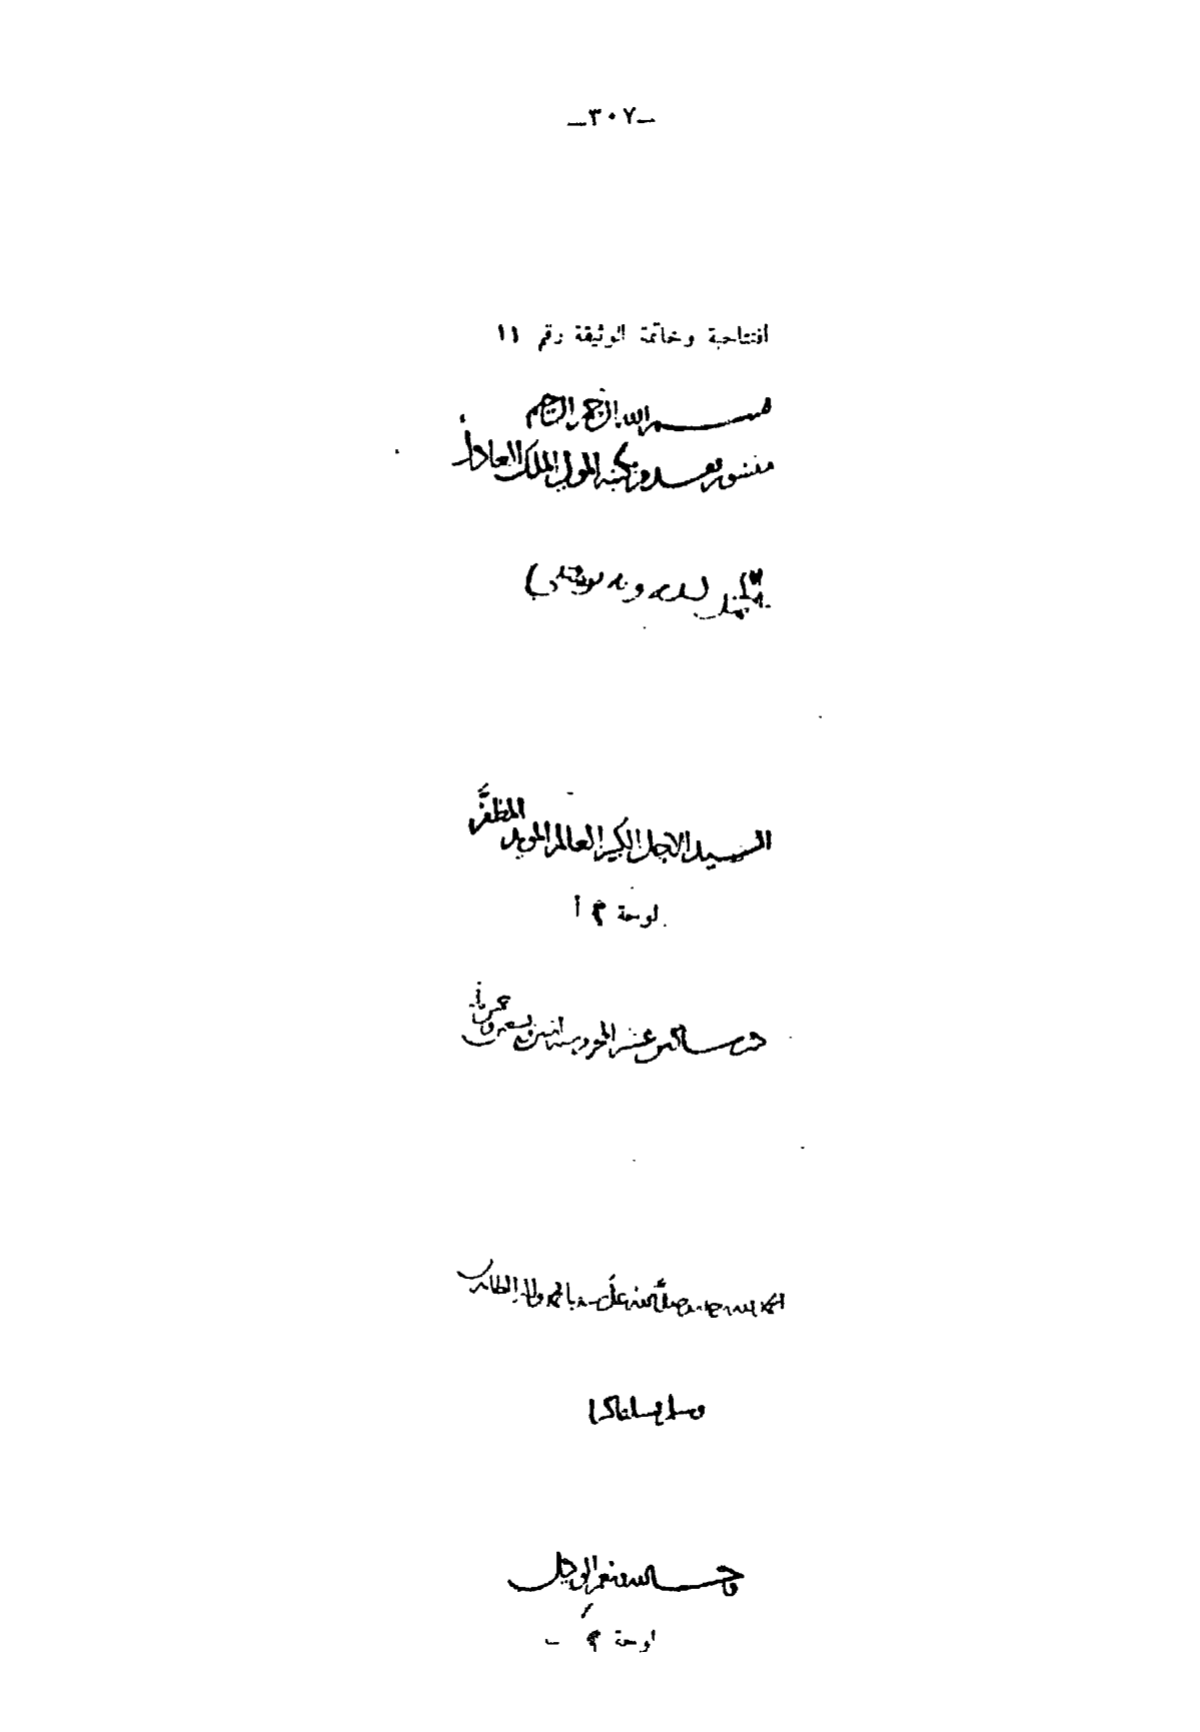 ـ٣٠٧ـ
افتتاحية وخاتمة الوثيقة رقم ١١
بسم الله الرحمن الرحيم
منشور تقدم بكتبه المولى الملك العادل
السيد الاجل الكبير العالم المويد المظفر
لوحة ٢ أ
سادس عشر المحرم سنة اثنين وتسعين وخمس مائة
الحمد لله وحده وصلى الله على سيدنا محمد واله الطاهرين
وسلم تسليما كثيرا
وحسبنا الله ونعم الوكيل
لوحة ٢ ب